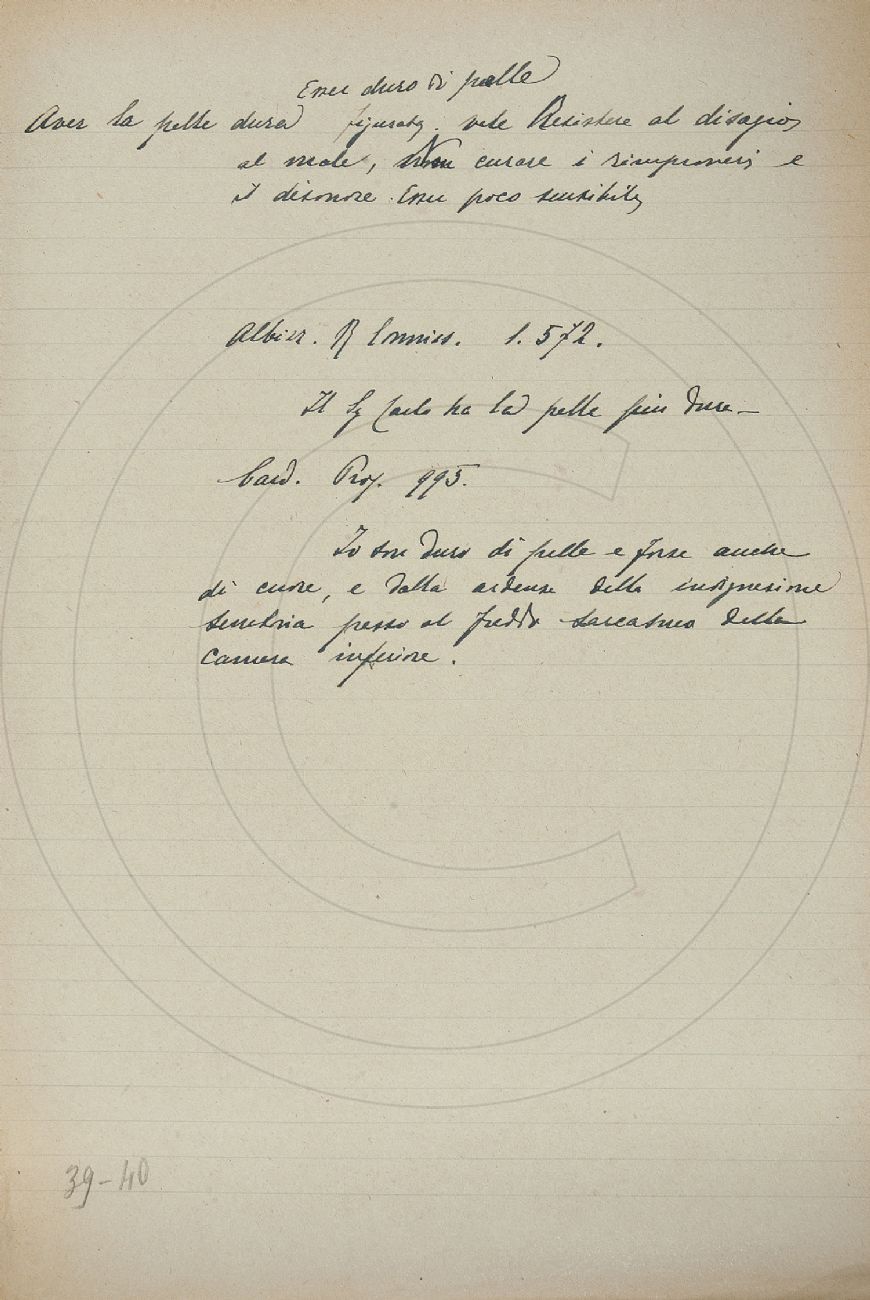 Esser duro di pelle
Aver la pelle dura figurato. vale Resistere al disagio,
al male, Non curare i rimproveri e
il disonore. Esser poco sensibile
Albier. R Commiss. 1. 572.
Il Sg Carlo ha la pelle più dura —
Card. Pros. 995.
Io son duro di pelle e forse anche
di cuore, e dalla ardenza della indignazione
senatoria passo al freddo sarcasmo della
Camera inferiore.
39-40